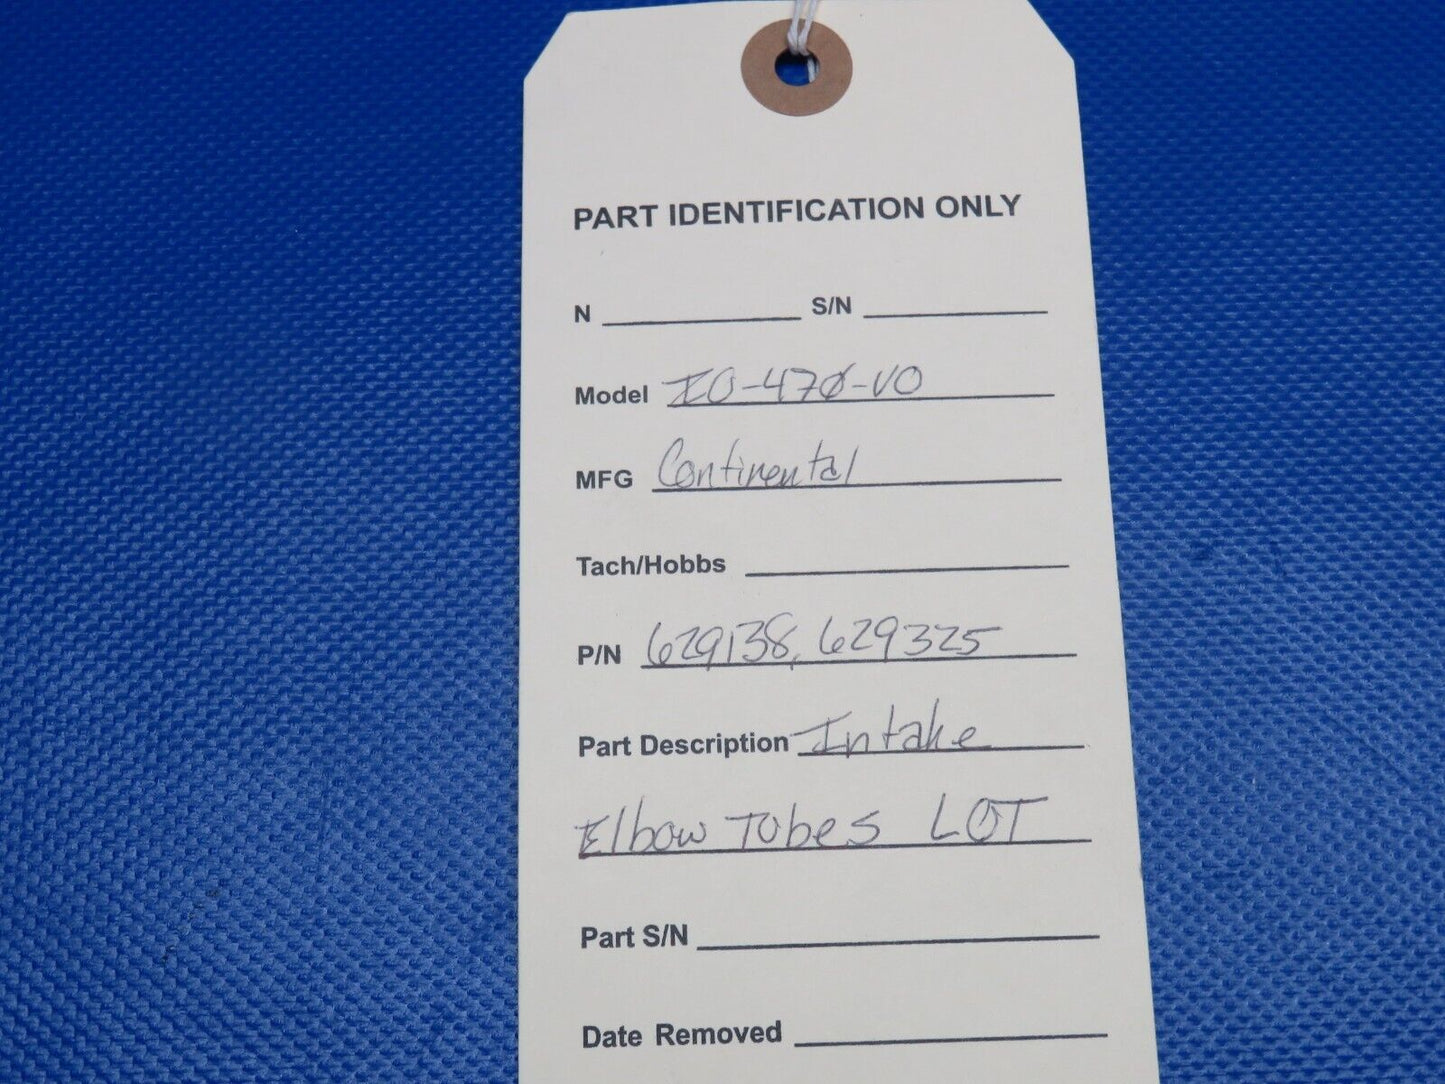 PART IDENTIFICATION ONLY
N S/N
Model IO-470-VO
MFG Continental
Tach/Hobbs
P/N 629138, 629325
Part Description Intake
Elbow Tubes LOT
Part S/N
Date Removed